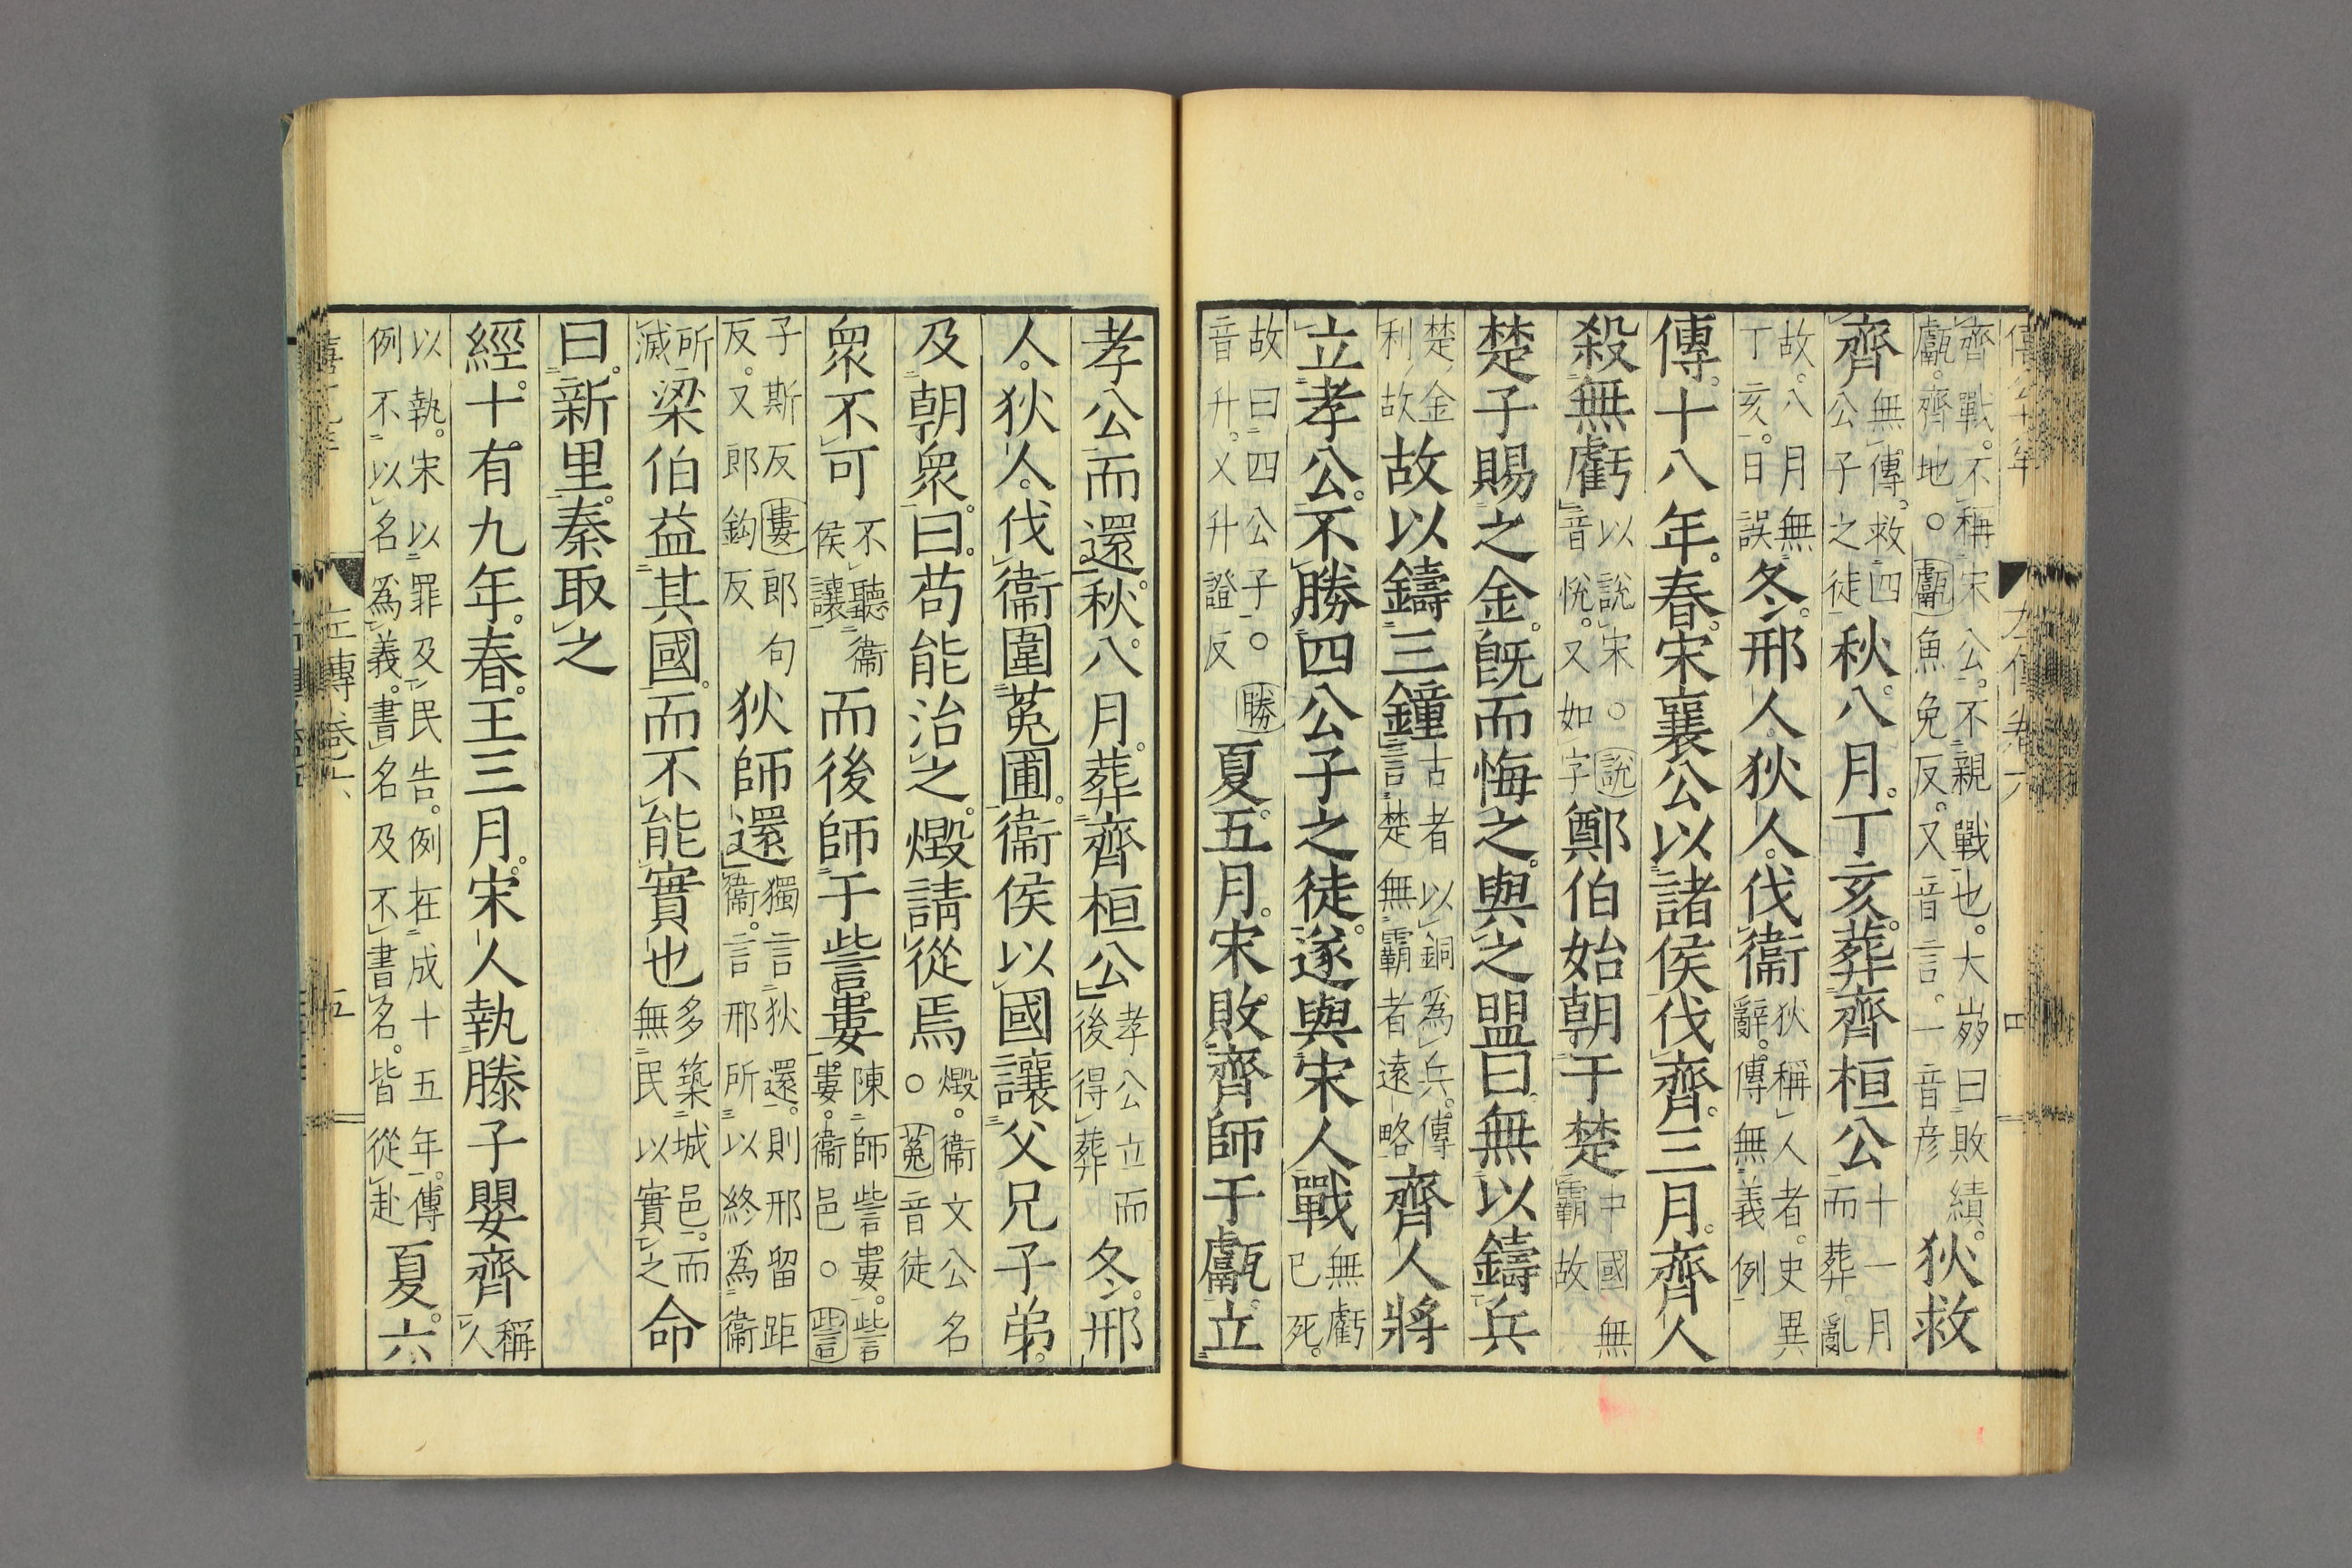 齊戰不稱宋公不親戰也大崩曰敗績
甗齊地○甗魚免反又音言一音彦
狄救
齊
無傳救四
公子之徒
秋八月丁亥葬齊桓公
十一月
而葬亂
故八月無
丁亥日誤
冬邢人狄人伐衞
狄稱人者史異
辭傳無義例
傳十八年春宋襄公以諸侯伐齊三月齊人
殺無虧
以說宋○說
音悅又如字
鄭伯始朝于楚
中國無
霸故
楚子賜之金旣而悔之與之盟曰無以鑄兵
楚金
利故
故以鑄三鐘
古者以銅爲兵傳
言楚無霸者遠略
齊人將
立孝公不勝四公子之徒遂與宋人戰
無虧
已死
故曰四公子○勝
音升又升證反
夏五月宋敗齊師于甗立
孝公而還秋八月葬齊桓公
孝公立而
後得葬
冬邢
人狄人伐衞圍菟圃衞侯以國讓父兄子弟
及朝衆曰苟能治之燬請從焉
燬衞文公名
○菟音徒
衆不可
不聽衞
侯讓
而後師于訾婁
陳師訾婁訾
婁衞邑○訾
子斯反婁郎句
反又郎鈎反
狄師還
獨言狄還則邢留距
衞言邢所以終爲衞
所
滅
梁伯益其國而不能實也
多築城邑而
無民以實之
命
曰新里秦取之
經十有九年春王三月宋人執滕子嬰齊
稱
人
以執宋以罪及民告例在成十五年傳
例不以名爲義書名及不書名皆從赴
夏六
左傳卷六
五
四